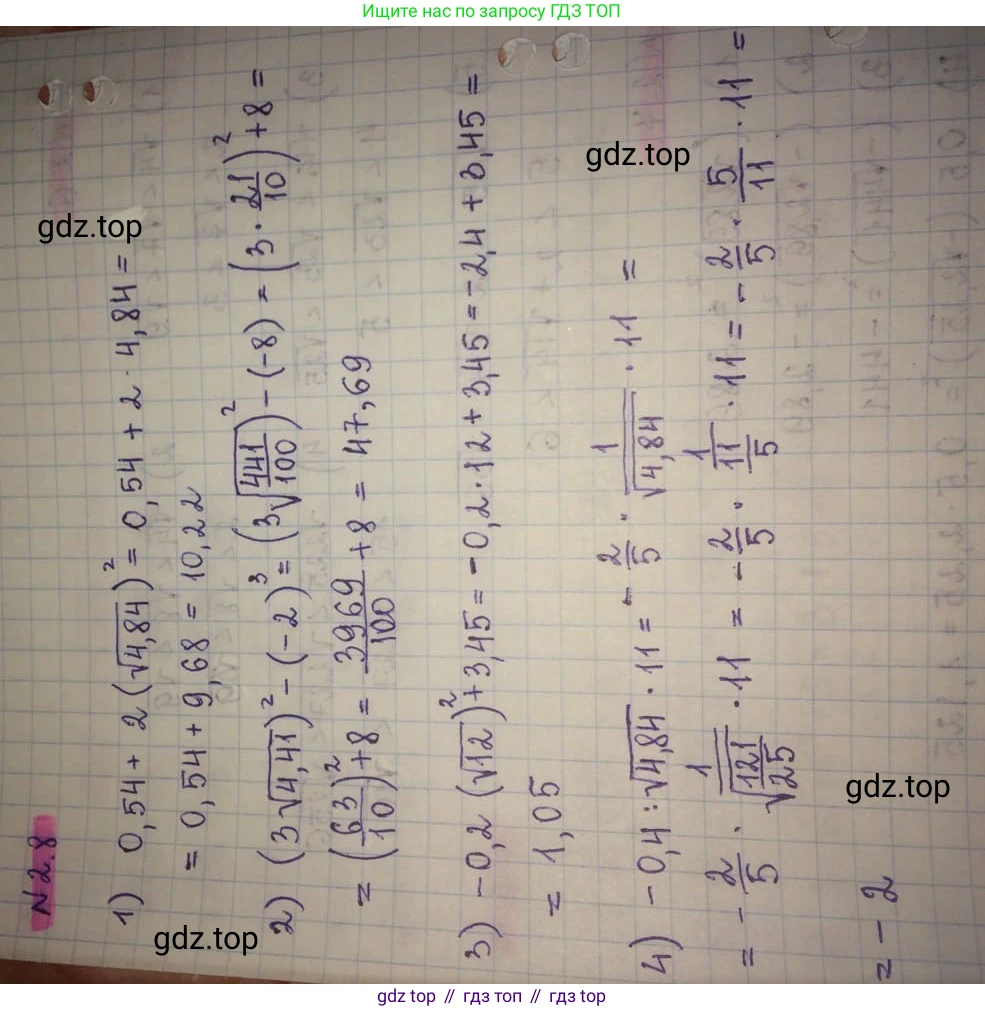 Ищите нас по запросу ГДЗ ТОП
N 2.8
1) 0,54 + 2(√4,84)² = 0,54 + 2 · 4,84 =
= 0,54 + 9,68 = 10,22
2) (3√4,41)² - (-2)³ = (3√441/100)² - (-8) = (3 · 21/10)² + 8 =
= (63/10)² + 8 = 3969/100 + 8 = 47,69
3) -0,2 (√12)² + 3,45 = -0,2 · 12 + 3,45 = -2,4 + 3,45 =
= 1,05
4) -0,4 : √4,84 · 11 = - 2/5 · 1/√4,84 · 11 =
= - 2/5 · 1/√121/√25 · 11 = - 2/5 · 1/11/5 · 11 = - 2/5 · 5/11 · 11 =
= - 2
gdz.top
gdz.top
gdz.top
gdz.top
gdz.top // гдз топ // gdz top